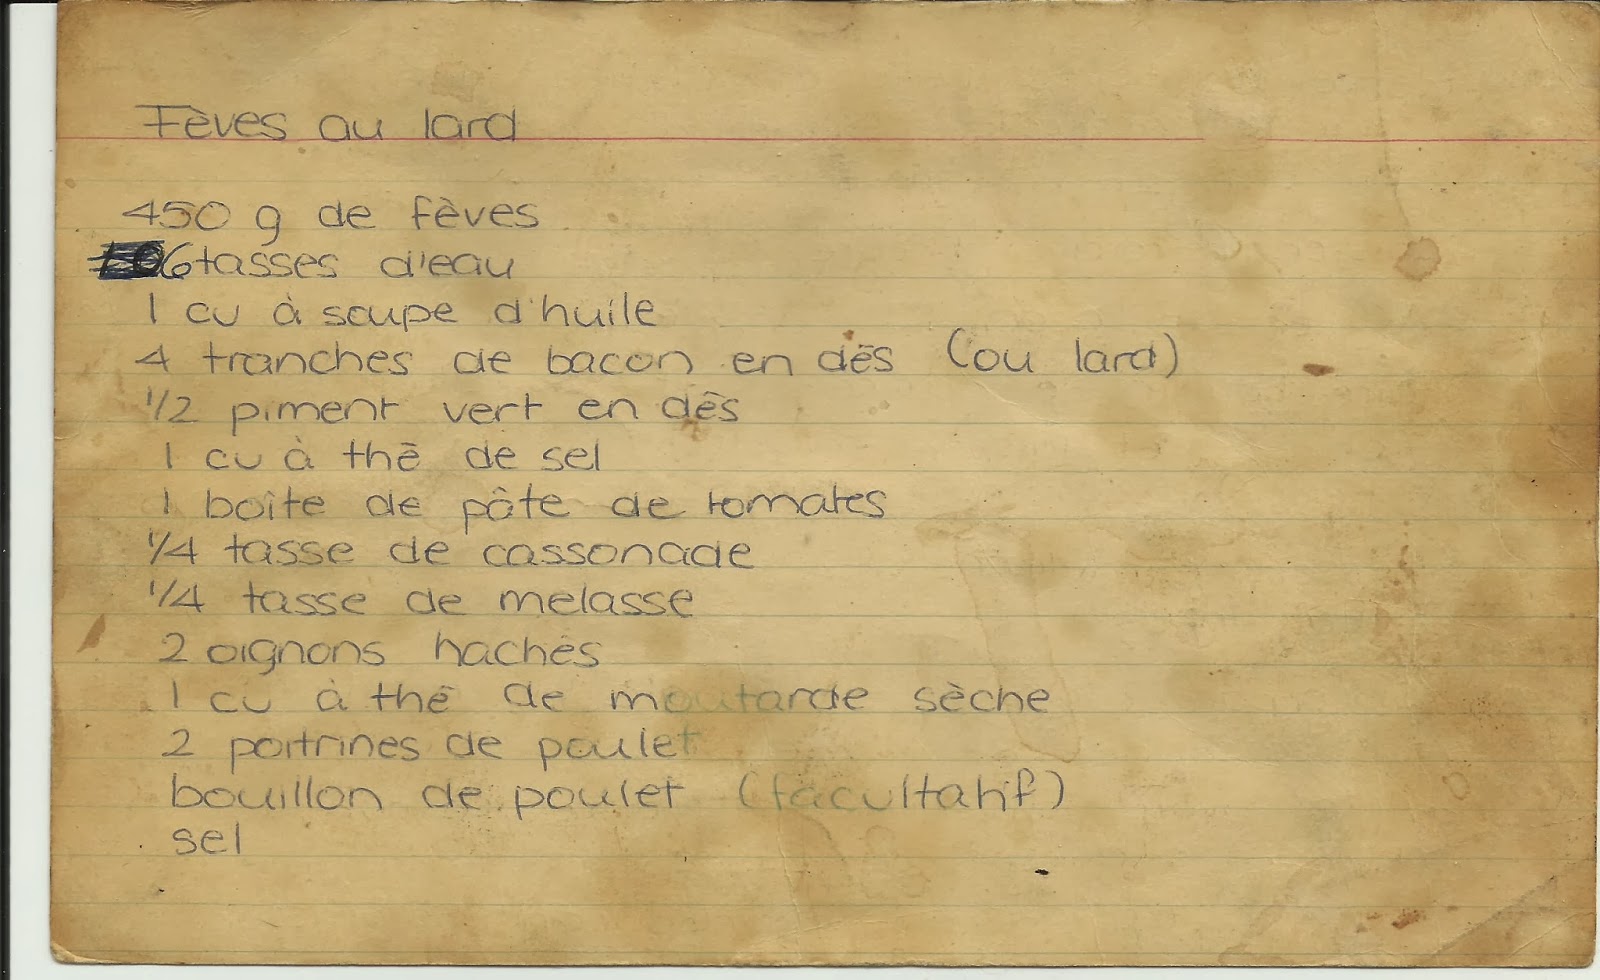 Fèves au lard
450 g de fèves
6 tasses d'eau
1 cu à soupe d'huile
4 tranches de bacon en dés (ou lard)
1/2 piment vert en dés
1 cu à thé de sel
1 boîte de pâte de tomates
1/4 tasse de cassonade
1/4 tasse de melasse
2 oignons hachés
1 cu à thé de moutarde sèche
2 poitrines de poulet
bouillon de poulet (facultatif)
sel